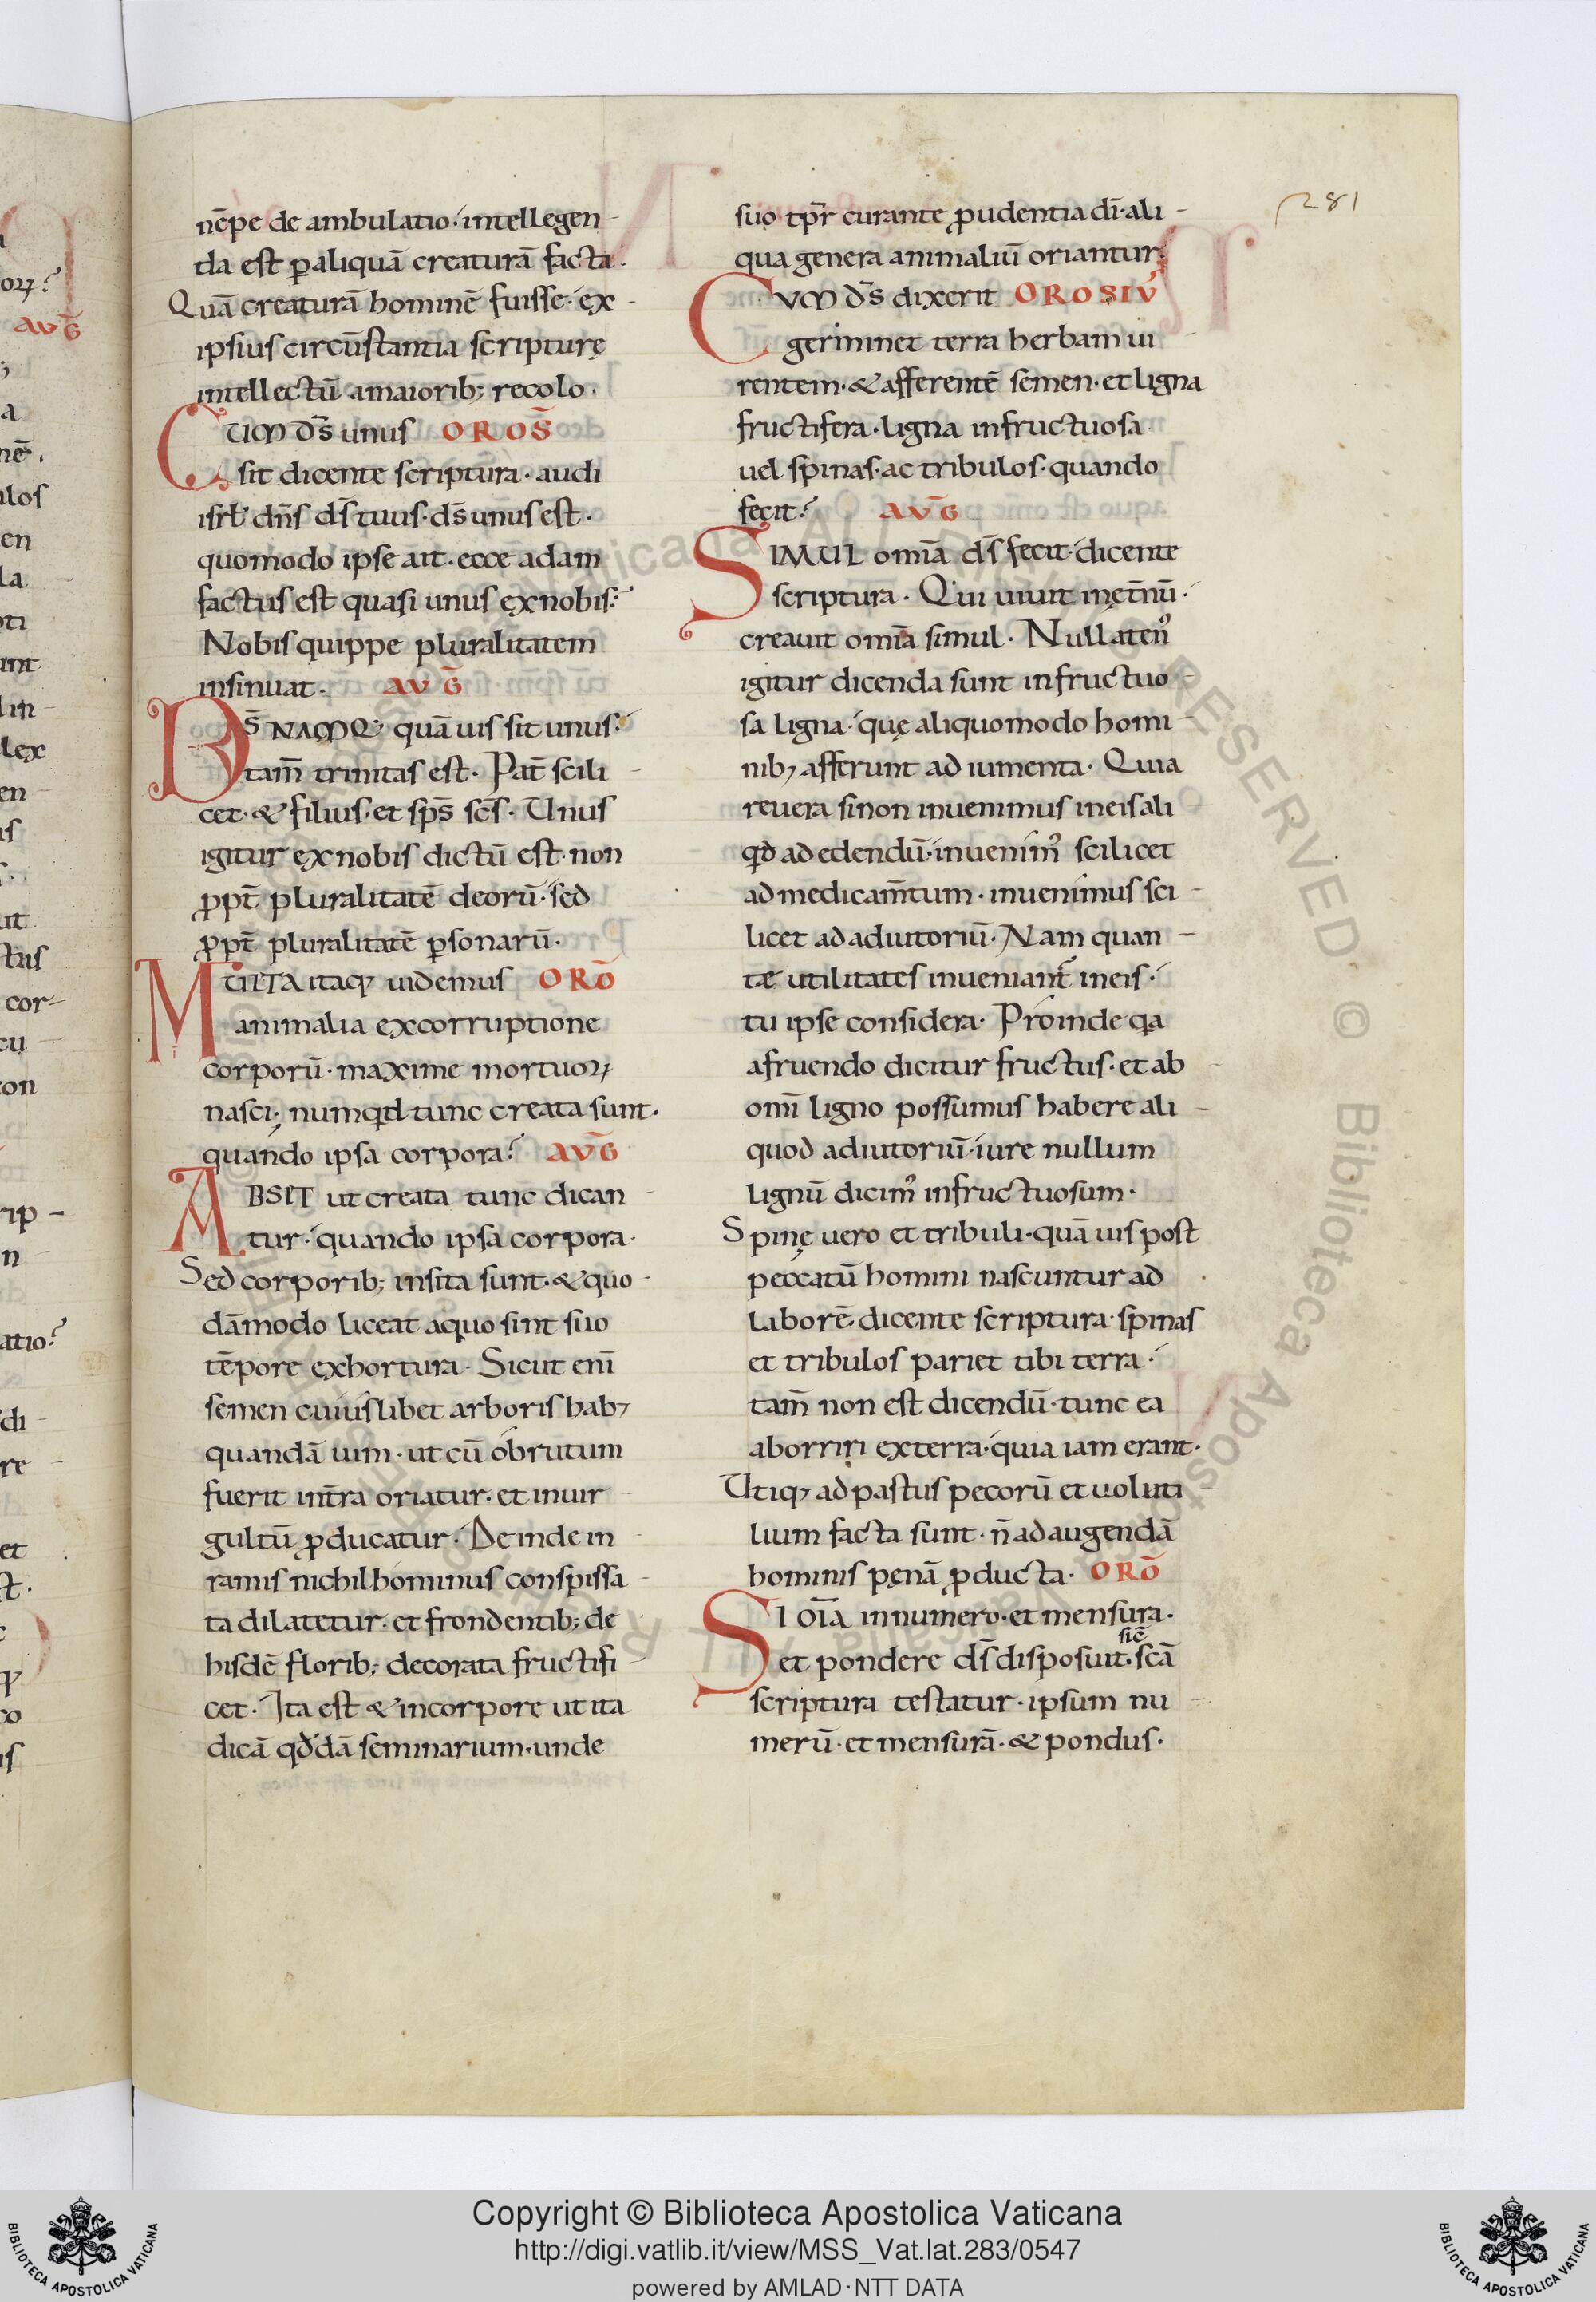 nēpe de ambulatio· intellegen-
da est ꝑ aliquā creaturā facta.
Quā creaturā hominē fuisse· ex-
ipsius circūstantia scripturę
intellectū a maiorib; recolo.
CUM d̄s unus OROS̄
sit dicente scriptura· audi
isrl̄ dn̄s d̄s tuus· d̄s unus est.
quomodo ipse ait· ecce adam
factus est quasi unus ex nobis?
Nobis quippe pluralitatem
insinuat. AVḠ
D̄S NAMQ; quā uis sit unus·
tam̄ trinitas est. Pat̄ scili-
cet· & filius· et sp̄s sc̄s. Unus
igitur ex nobis dictū est· non
ꝓpt̄ pluralitatē deorū· sed
ꝓpt̄ pluralitatē ꝑsonarū.
MULTA itaq; uidemus ORŌ
animalia ex corruptione
corporū· maxime mortuoꝝ
nasci; numqd tunc creata sunt.
quando ipsa corpora? AVḠ
ABSIT ut creata tunc dican-
tur· quando ipsa corpora.
Sed corporib; insita sunt· & quo-
dāmodo liceat a quo sint suo
tēpore exhortura. Sicut enī
semen cuiuslibet arboris hab;
quandā uim· ut cū obrutum
fuerit int̄ra oriatur· et in uir-
gultū ꝓducatur· Deinde in
ramis nichilhominus conspissa-
ta dilatetur· et frondentib; de
hisdē florib; decorata fructifi-
cet. Ita est & in corpore ut ita
dicā qđdā seminarium· unde
suo tp̄r curante ꝓudentia dī· ali-
qua genera animaliū oriantur.
CVM d̄s dixerit OROSIV᾽
germinet terra herbam ui-
rentem· & afferentē semen· et ligna
fructifera· ligna infructuosa
uel spinas· ac tribulos· quando
fecit? AVḠ
SIMUL omīa d̄s fecit· dicente
scriptura. Qui uiuit in ęt̄nū·
creauit omīa simul. Nullaten᾽
igitur dicenda sunt infructuo-
sa ligna· quę aliquomodo homi-
nib; afferunt adiumenta. Quia
reuera si non inuenimus in eis ali
qđ ad edendū· inuenim᾽ scilicet
ad medicam̄tum· inuenimus sci-
licet ad adiutoriū. Nam quan-
tæ utilitates inueniant̄ in eis·
tu ipse considera. Proinde qa
a fruendo dicitur fructus· et ab
omī ligno possumus habere ali-
quod adiutoriū· iure nullum
lignū dicim᾽ infructuosum.
Spinę uero et tribuli· quā uis post
peccatū homini nascuntur ad
laborē· dicente scriptura· spinas
et tribulos pariet tibi terra·
tam̄ non est dicendū· tunc ea
aborriri ex terra· quia iam erant.
Utiq; ad pastus pecorū et uoluti-
lium facta sunt· n̄ ad augendā
hominis pęnā ꝓducta. ORŌ
SI oīa in numero· et mensura.
siē
et pondere d̄s disposuit· scā
scriptura testatur· ipsum nu-
merū· et mensurā· & pondus.
281
Copyright © Biblioteca Apostolica Vaticana
http://digi.vatlib.it/view/MSS_Vat.lat.283/0547
powered by AMLAD·NTT DATA
BIBLIOTECA APOSTOLICA VATICANA
BIBLIOTECA APOSTOLICA VATICANA